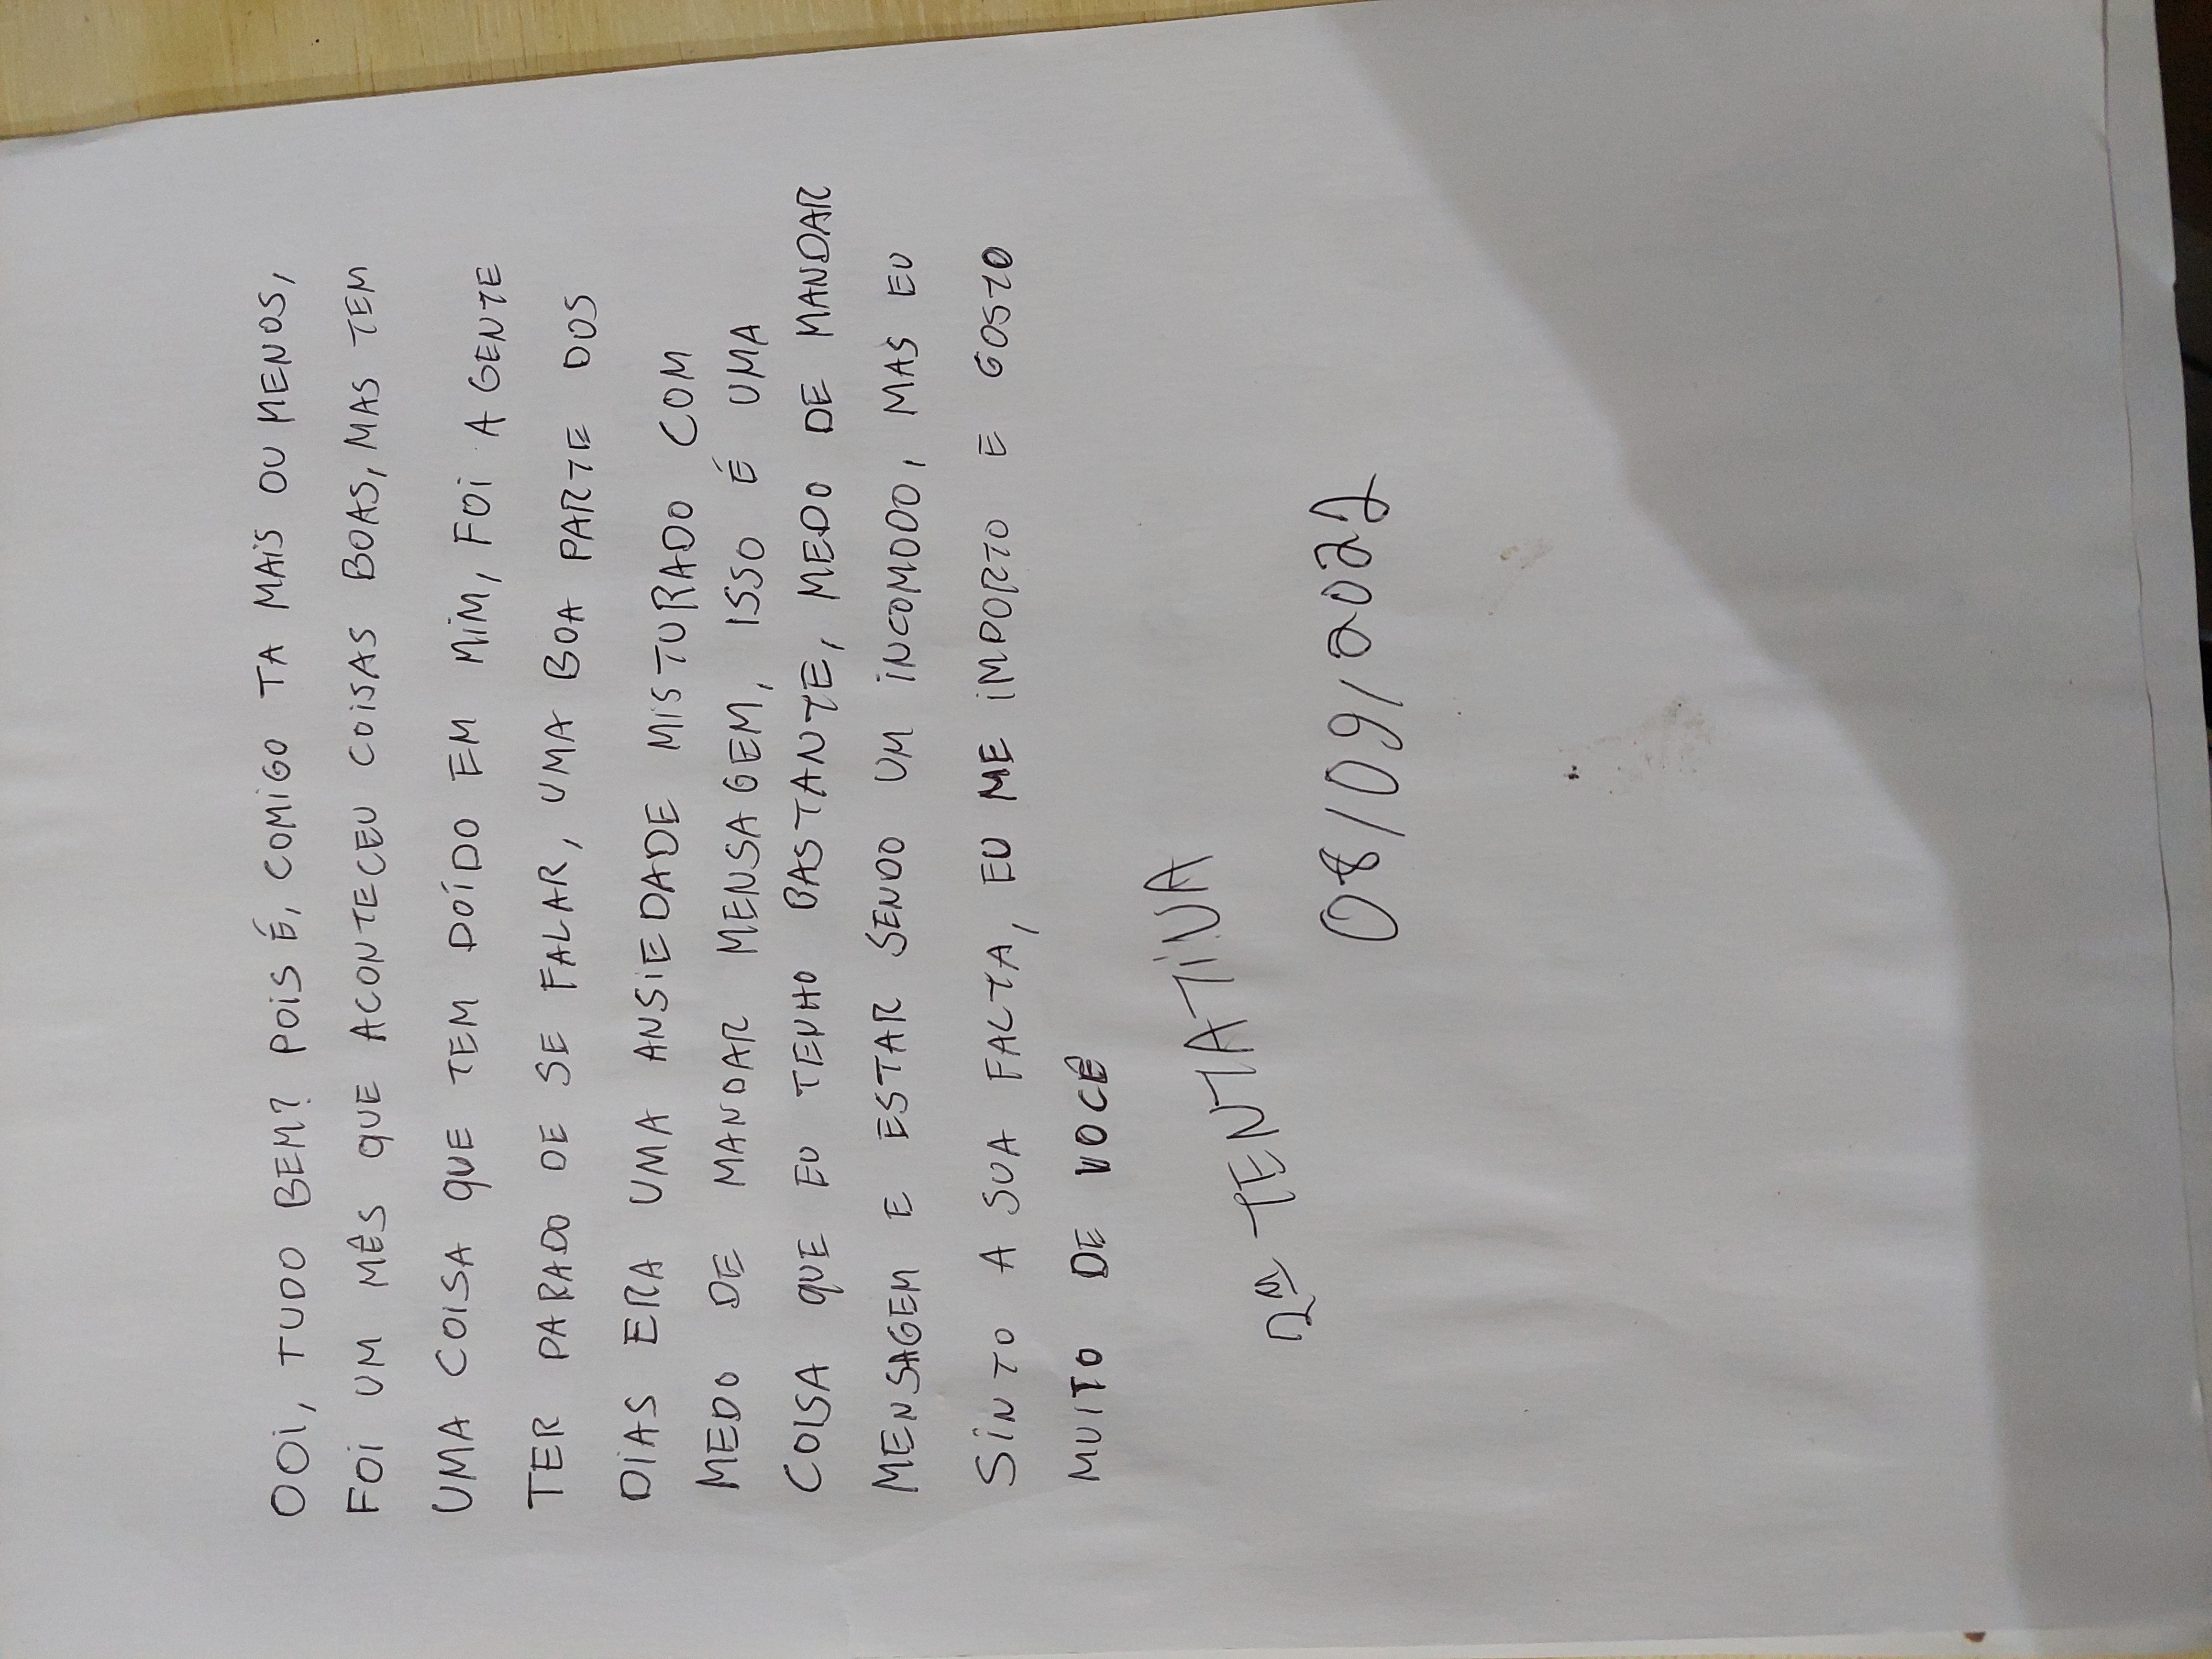 OOI, TUDO BEM? POIS É, COMIGO TA MAIS OU MENOS,
FOI UM MÊS QUE ACONTECEU COISAS BOAS, MAS TEM
UMA COISA QUE TEM DOÍDO EM MIM, FOI A GENTE
TER PARADO DE SE FALAR, UMA BOA PARTE DOS
DIAS ERA UMA ANSIEDADE MISTURADO COM
MEDO DE MANDAR MENSAGEM, ISSO É UMA
COISA QUE EU TENHO BASTANTE, MEDO DE MANDAR
MENSAGEM E ESTAR SENDO UM INCOMODO, MAS EU
SINTO A SUA FALTA, EU ME IMPORTO E GOSTO
MUITO DE VOCÊ
2ª TENTATIVA
08/09/2022